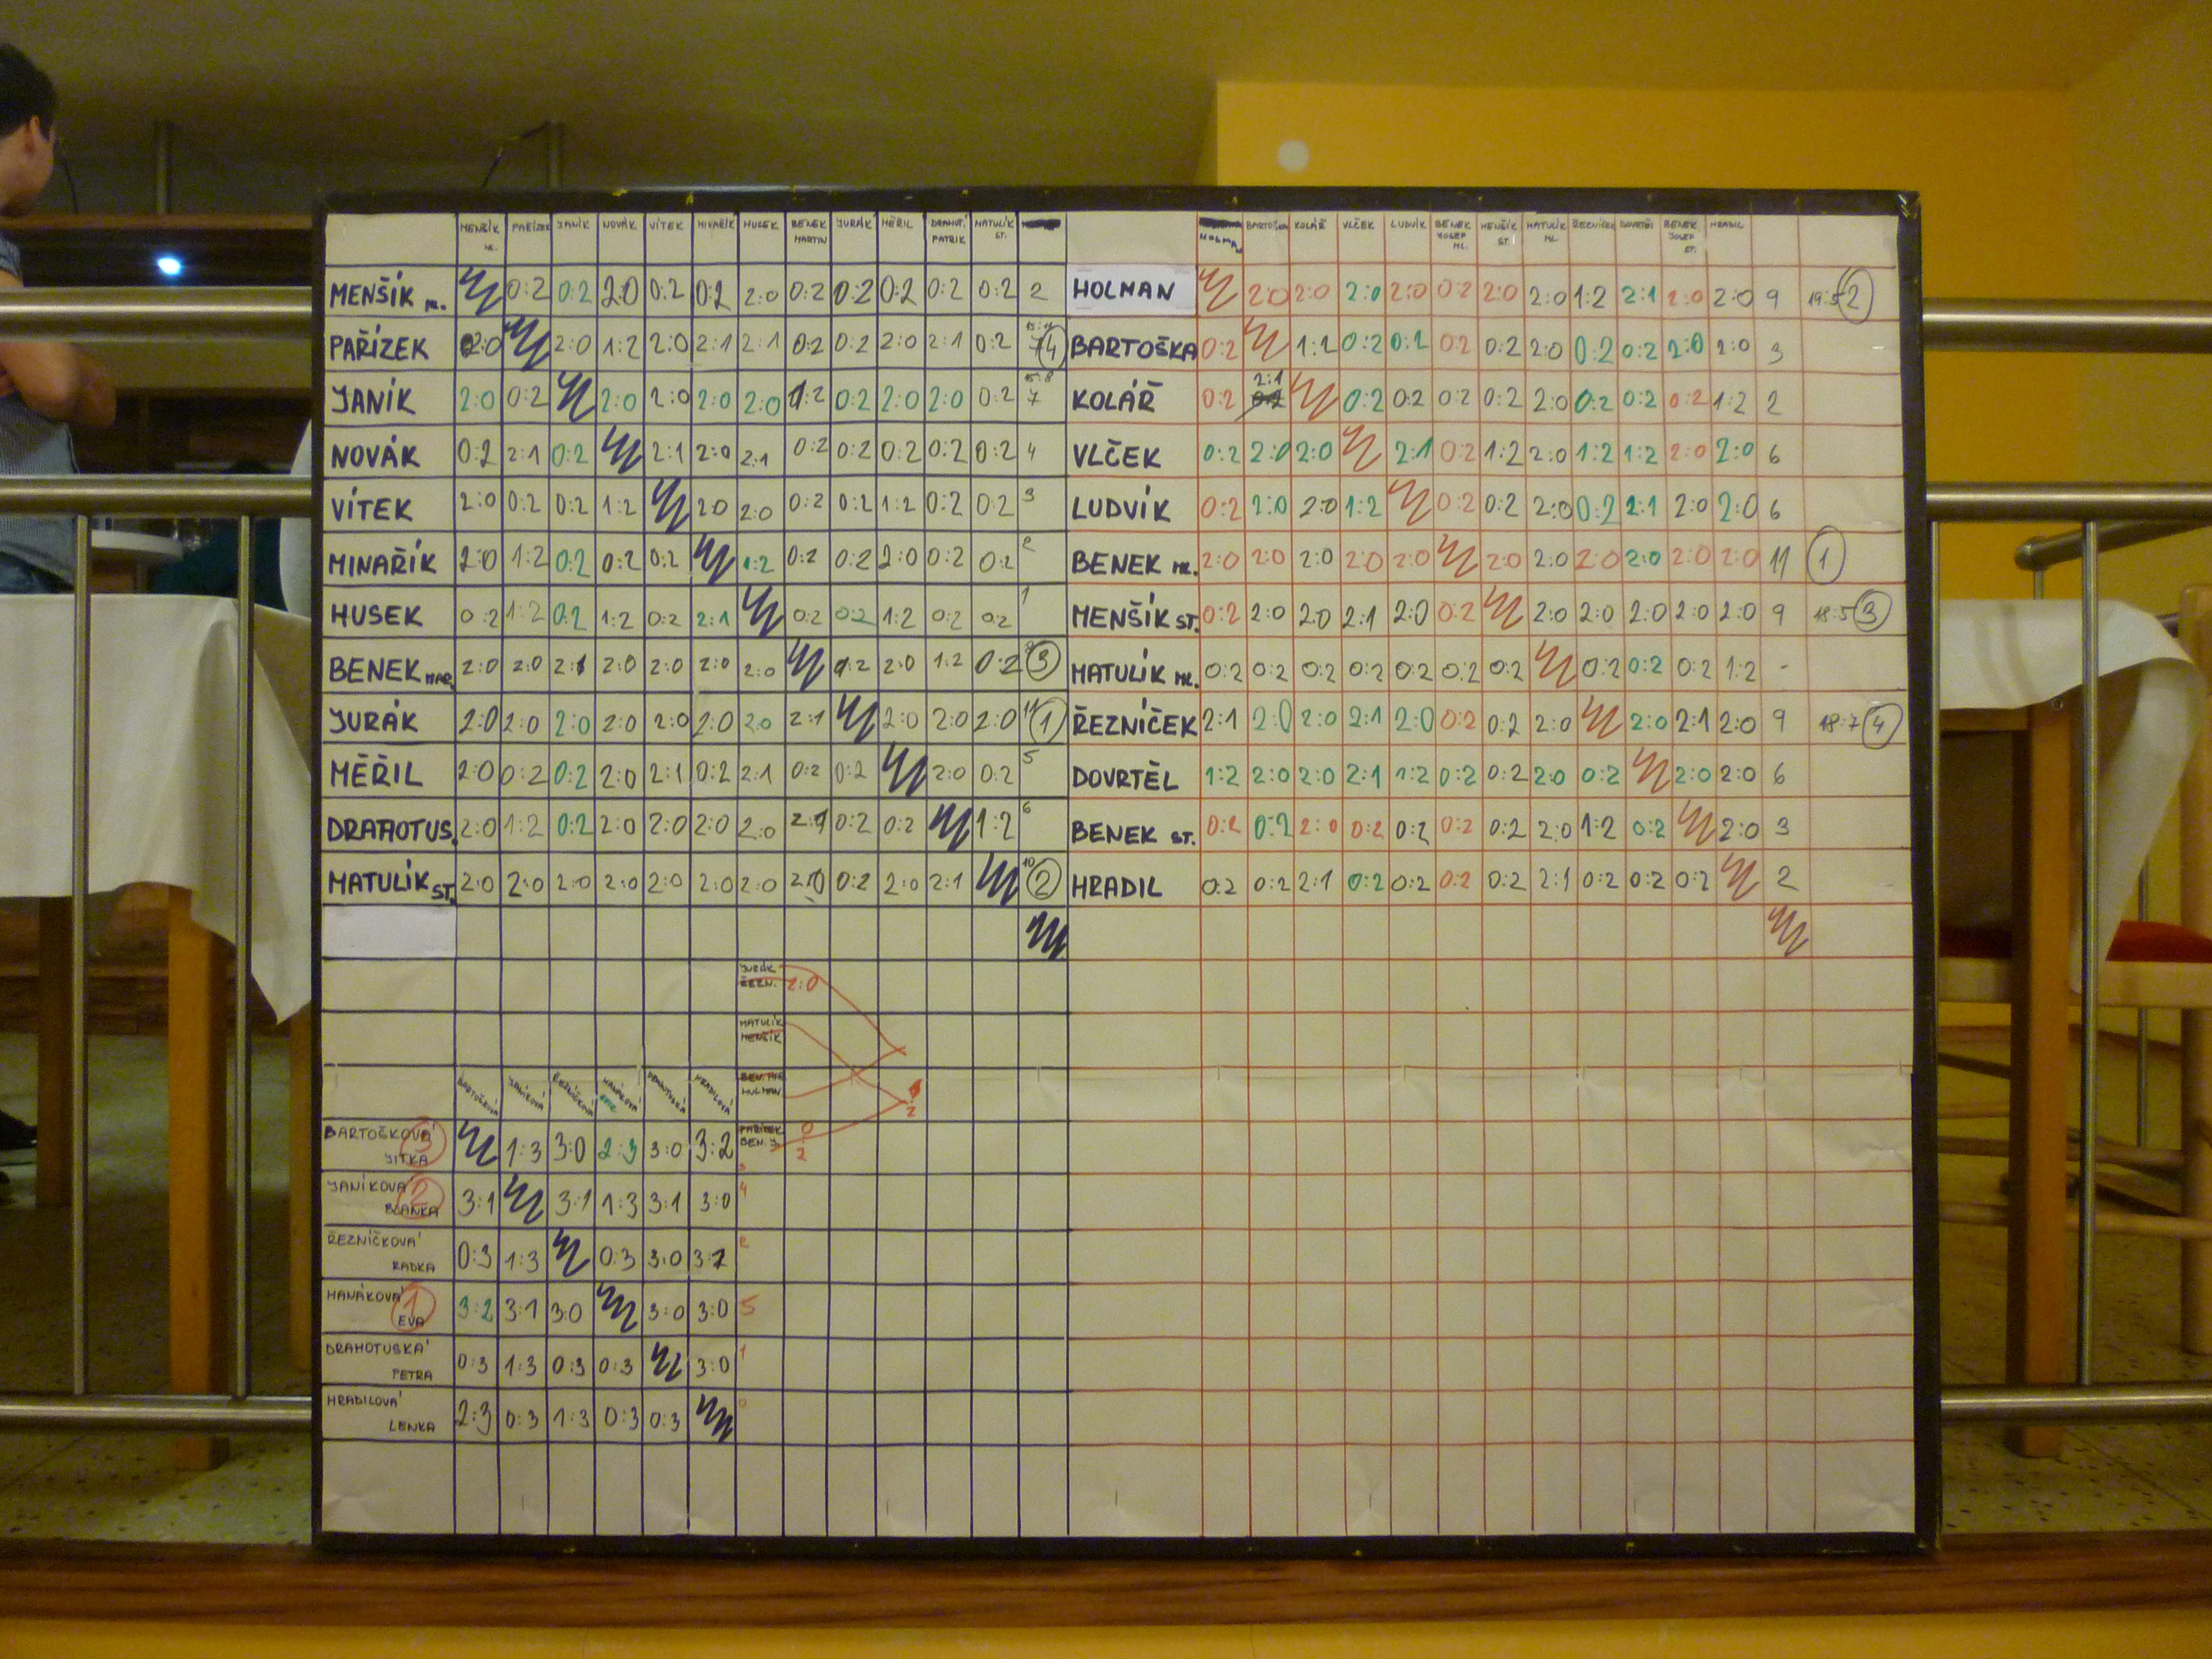 MENŠÍK ML. PAŘÍZEK JANÍK NOVÁK VÍTEK MINAŘÍK HUSEK BENEK MARTIN JURÁK MĚŘIL DRAHOT. PATRIK MATULÍK ST.
MENŠÍK ML. 0:2 0:2 2:0 0:2 0:2 2:0 0:2 0:2 0:2 0:2 0:2 2
PAŘÍZEK 2:0 2:0 1:2 2:0 2:1 2:1 0:2 0:2 2:0 2:1 0:2 7 4
JANÍK 2:0 0:2 2:0 2:0 2:0 2:0 1:2 0:2 2:0 2:0 0:2 15:8 7
NOVÁK 0:2 2:1 0:2 2:1 2:0 2:1 0:2 0:2 0:2 0:2 0:2 4
VÍTEK 2:0 0:2 0:2 1:2 2:0 2:0 0:2 0:2 1:2 0:2 0:2 3
MINAŘÍK 2:0 1:2 0:2 0:2 0:2 1:2 0:2 0:2 2:0 0:2 0:2 2
HUSEK 0:2 1:2 0:2 1:2 0:2 2:1 0:2 0:2 1:2 0:2 0:2 1
BENEK MAR. 2:0 2:0 2:1 2:0 2:0 2:0 2:0 1:2 2:0 1:2 0:2 3
JURÁK 2:0 2:0 2:0 2:0 2:0 2:0 2:0 2:1 2:0 2:0 2:0 11 1
MĚŘIL 2:0 0:2 0:2 2:0 2:1 0:2 2:1 0:2 0:2 2:0 0:2 5
DRAHOTUS. 2:0 1:2 0:2 2:0 2:0 2:0 2:0 2:1 0:2 0:2 1:2 6
MATULÍK ST. 2:0 2:0 2:0 2:0 2:0 2:0 2:0 2:0 0:2 2:0 2:1 10 2
HOLMAN BARTOŠKA KOLÁŘ VLČEK LUDVÍK BENEK JOSEF ML. MENŠÍK ST. MATULÍK ML. ŘEZNÍČEK DOVRTĚL BENEK JOSEF ST. HRADIL
HOLMAN 2:0 2:0 2:0 2:0 0:2 2:0 2:0 1:2 2:1 2:0 2:0 9 19:5 2
BARTOŠKA 0:2 1:2 0:2 0:2 0:2 0:2 2:0 0:2 0:2 2:0 2:0 3
KOLÁŘ 0:2 2:1 0:2 0:2 0:2 0:2 2:0 0:2 0:2 0:2 1:2 2
VLČEK 0:2 2:0 2:0 2:1 0:2 1:2 2:0 1:2 1:2 2:0 2:0 6
LUDVÍK 0:2 2:0 2:0 1:2 0:2 0:2 2:0 0:2 2:1 2:0 2:0 6
BENEK ML. 2:0 2:0 2:0 2:0 2:0 2:0 2:0 2:0 2:0 2:0 2:0 11 1
MENŠÍK ST. 0:2 2:0 2:0 2:1 2:0 0:2 2:0 2:0 2:0 2:0 2:0 9 18:5 3
MATULÍK ML. 0:2 0:2 0:2 0:2 0:2 0:2 0:2 0:2 0:2 0:2 1:2 -
ŘEZNÍČEK 2:1 2:0 2:0 2:1 2:0 0:2 0:2 2:0 2:0 2:1 2:0 9 18:7 4
DOVRTĚL 1:2 2:0 2:0 2:1 1:2 0:2 0:2 2:0 0:2 2:0 2:0 6
BENEK ST. 0:2 0:2 2:0 0:2 0:2 0:2 0:2 2:0 1:2 0:2 2:0 3
HRADIL 0:2 0:2 2:1 0:2 0:2 0:2 0:2 2:1 0:2 0:2 0:2 2
JURÁK
ŘEZN. 2:0
MATULÍK
MENŠÍK
BEN. MAR
HOLMAN
PAŘÍZEK 0
BEN. J. 2
BARTOŠKOVÁ JANÍKOVÁ ŘEZNÍČKOVÁ HANÁKOVÁ DRAHOTUSKÁ HRADILOVÁ
BARTOŠKOVÁ JITKA 3 1:3 3:0 2:3 3:0 3:2 3
JANÍKOVÁ BLANKA 2 3:1 3:1 1:3 3:1 3:0 4
ŘEZNÍČKOVÁ RADKA 0:3 1:3 0:3 3:0 3:1 2
HANÁKOVÁ EVA 1 3:2 3:1 3:0 3:0 3:0 5
DRAHOTUSKÁ PETRA 0:3 1:3 0:3 0:3 3:0 1
HRADILOVÁ LENKA 2:3 0:3 1:3 0:3 0:3 0